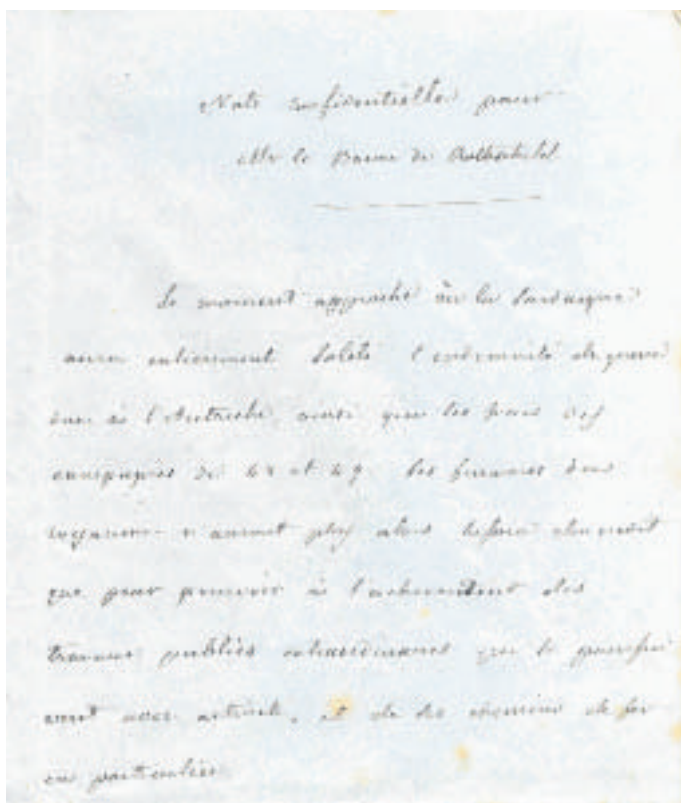 Note confidentielle pour
Mr le Baron de Rothschild
Le moment approche où la Sardaigne
aura entièrement soldé l'indemnité de guerre
due à l'Autriche ainsi que les frais des
campagnes de 48 et 49. Les finances du
royaume n'auront plus alors besoin du crédit
que pour pourvoir à l'achèvement des
travaux publics extraordinaires qui se poursuivent
avec activité, et de ses chemins de fer
en particulier